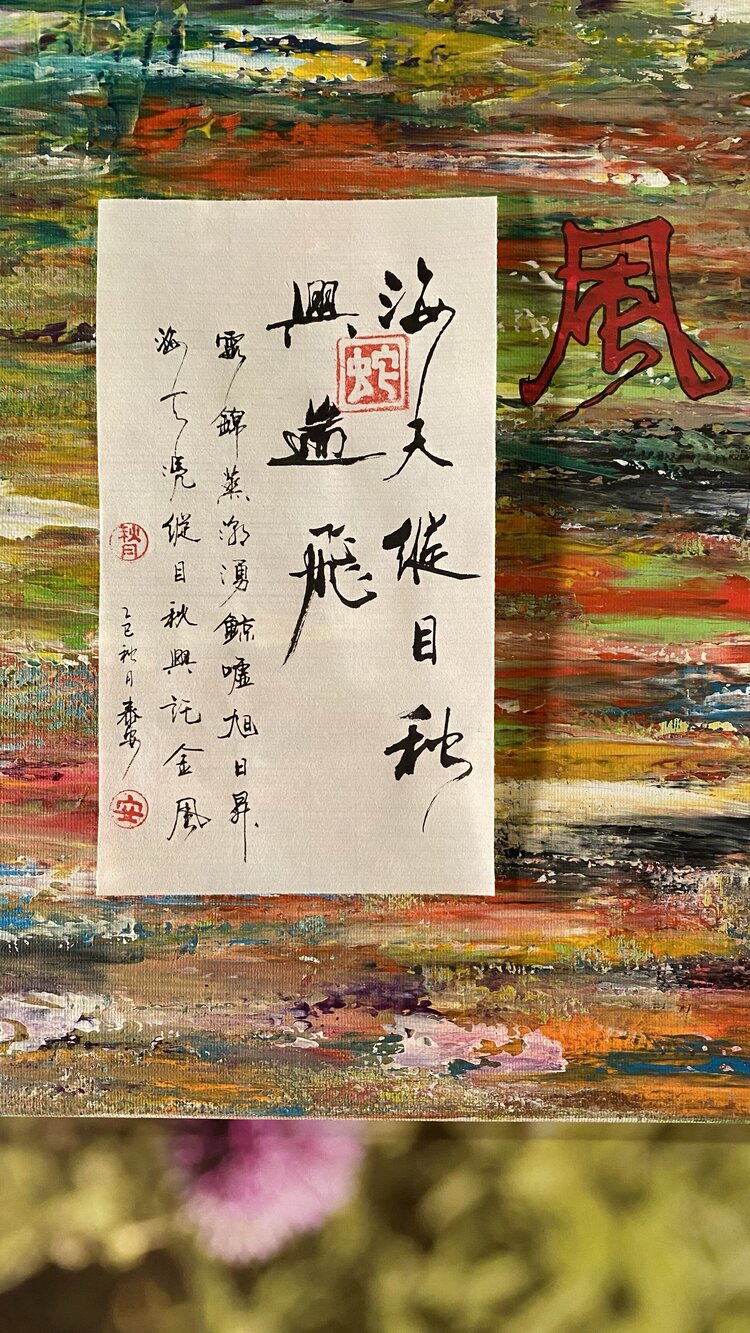 風
海天縱目秋
興遄飛
蛇
霞錦蒸潮湧鯨噓旭日昇
海天縱目秋興託金風
秋月
乙巳秋月泰安
安